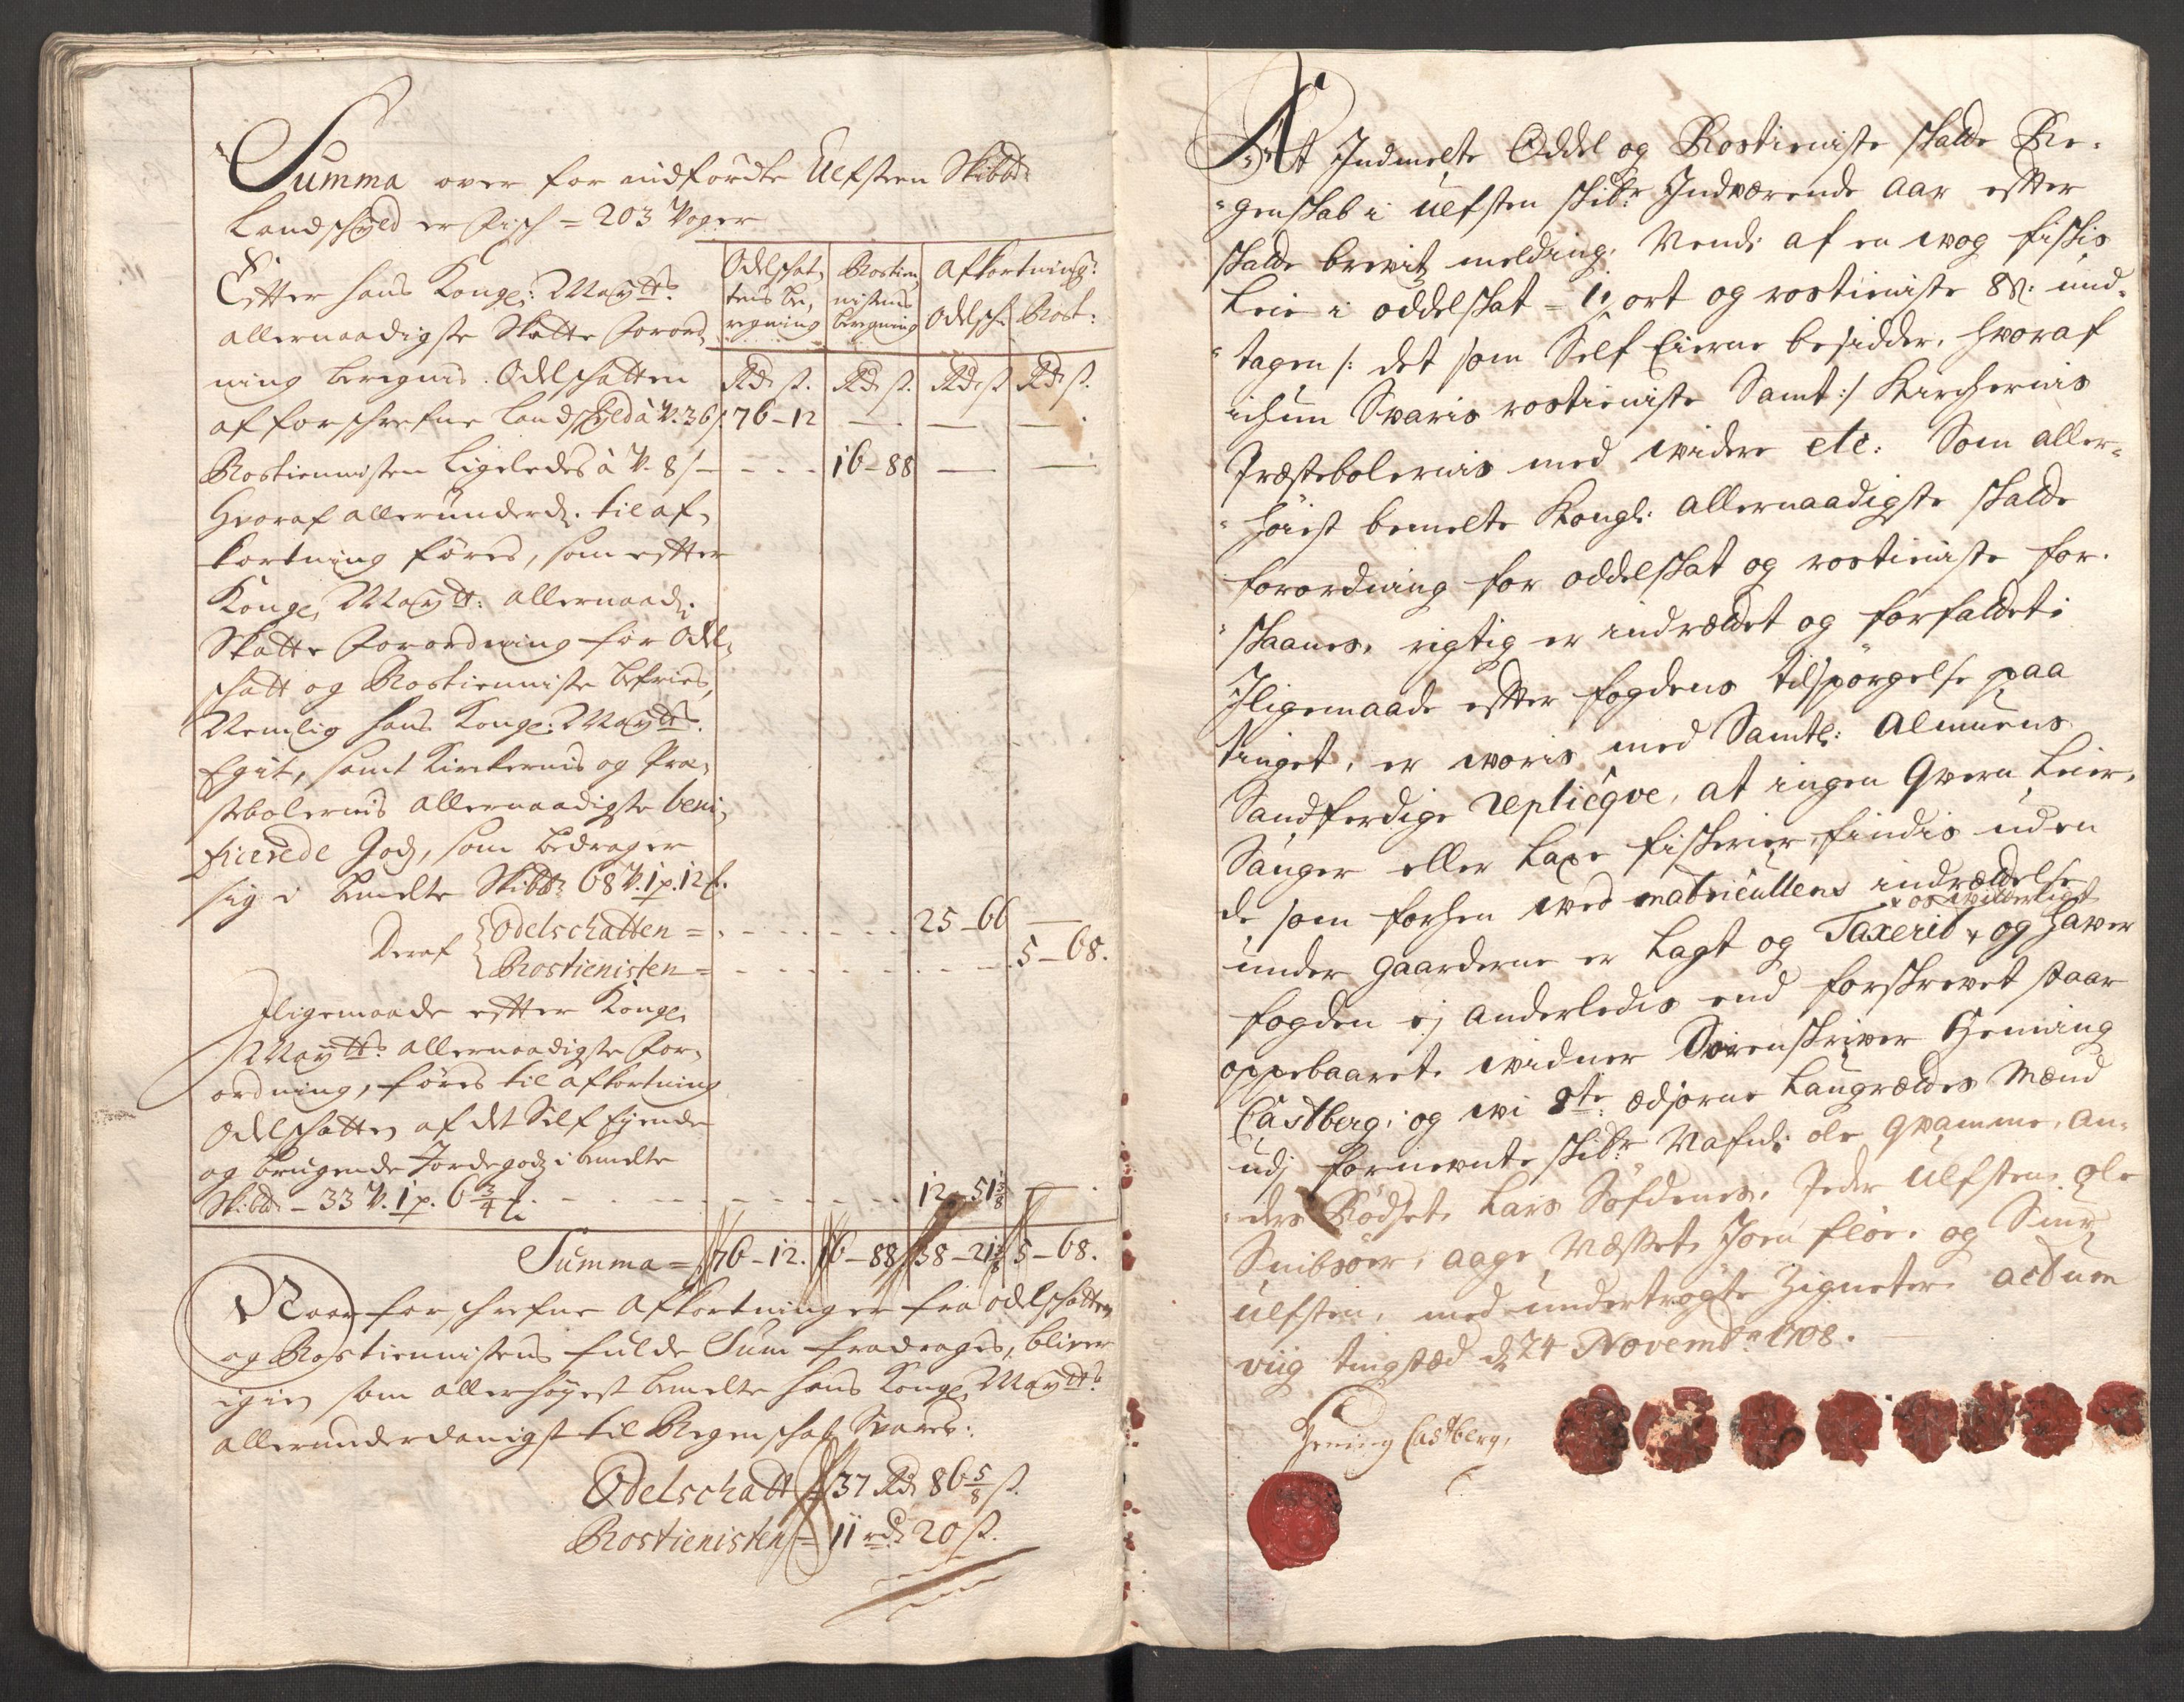 Summa over for andfördte Ulfsten Skibbr:
Landschyld er Fisch = 203 Voger
Efter hans Kongl: Maytts
allernaadigste Skatte Forord,
ning beregnis. Odelschatten
af forschrefne Landschyld à V. 36 ß
Rostiennisten Ligeledes à V. 8 ß
Hvoraf allerunderd: til af,
kortning föres, som efter
Kongl Maytt: allernaad:
Skatte Forordning for Odel,
schatt og Rostienniste befries,
Nemlig hans Kongl: Maytts
Egit, samt Kirkernis og Præ,
stebolernis allernaadigste beni,
ficerede Godz, som bedrager
sig i bemelte Skibbr: 68 V. 1 p. 12 ℔.
Odelschat, tens be, regning | Rostien, nistens beregning | Afkortning: Odelsch: | Rost:
Rdr ß. | Rdr ß. | Rdr ß | Rdr ß.
76 - 12
16 - 88
Deraf { Odelschatten = 25 - 66
Rostienisten = 5 - 68.
Iligemaade efter Kongl
Maytts allernaadigste For,
ordning, föres til afkortning
Odelschatten af det Self Eyende
og brugende Jordegodz i bemelte
Skibbr - 33 V. 1 p. 6 3/4 ℔. 12 - 51 3/8
Summa = 76 - 12. 16 - 88 38 - 21 3/8 5 - 68.
Naar forschrefne afkortninger fra Odelschatten
og Rostiennistens fulde Sum fradrages, bliver
igien som allerhöyest bemelte hans Kongl Maytts
allerunderdanigst til Regenschab Svares:
Odelschatt 37 Rdr 86 5/8 ß.
Rostienisten = 11 rdr 20 ß.
At Indmelte Oddel og Rostieniste skatte Re-
genskab i Ulfsten skibr: Indværende aar efter
skatte brevitz melding, Nemb: af en wog fiskis
Leie i oddelskat - 1½ ort og rostieniste 8 ß: und-
tagen /: det som Self Eierne besidder, hvoraf
ichun Svaris rostieniste Samt :/ Kirchernis
Præstebolernis med widere etc: Som aller-
höiest bemelte Kongl: allernaadigste skatte
forordning for oddelskat og rostieniste for-
skaanes, rigtig er indrættet og forfattet;
Iligemaade efter fogdens tilspörgelse paa
tinget, er woris med Samtl: Almuens
Sandferdige replicqve, at ingen Qvern Leier,
Sauger eller Laxe fiskerier findis uden
de som forhen wed matricullens indrættelse
under gaarderne er Lagt og Taxerit + og haver
+ os vitterligt
fogden ej anderledis end forskrevet staar
oppebaaret. widner Sorenskriver Heming
Castberg, og wi 8te: Edsorne Laugrættes Mænd
udj fornevnte skibr: Nafnl: ole Qvamme, An-
ders Rödset, Lars Söfdenes, Peder Ulfsten, ole
Snibsöer, Aage Næsset, Joen flöe, og Sivr
Ulfsten, med undertrögte Zigneter. Actum
viig tingstæd d 24 Novembr 1708.
Heming Castberg,